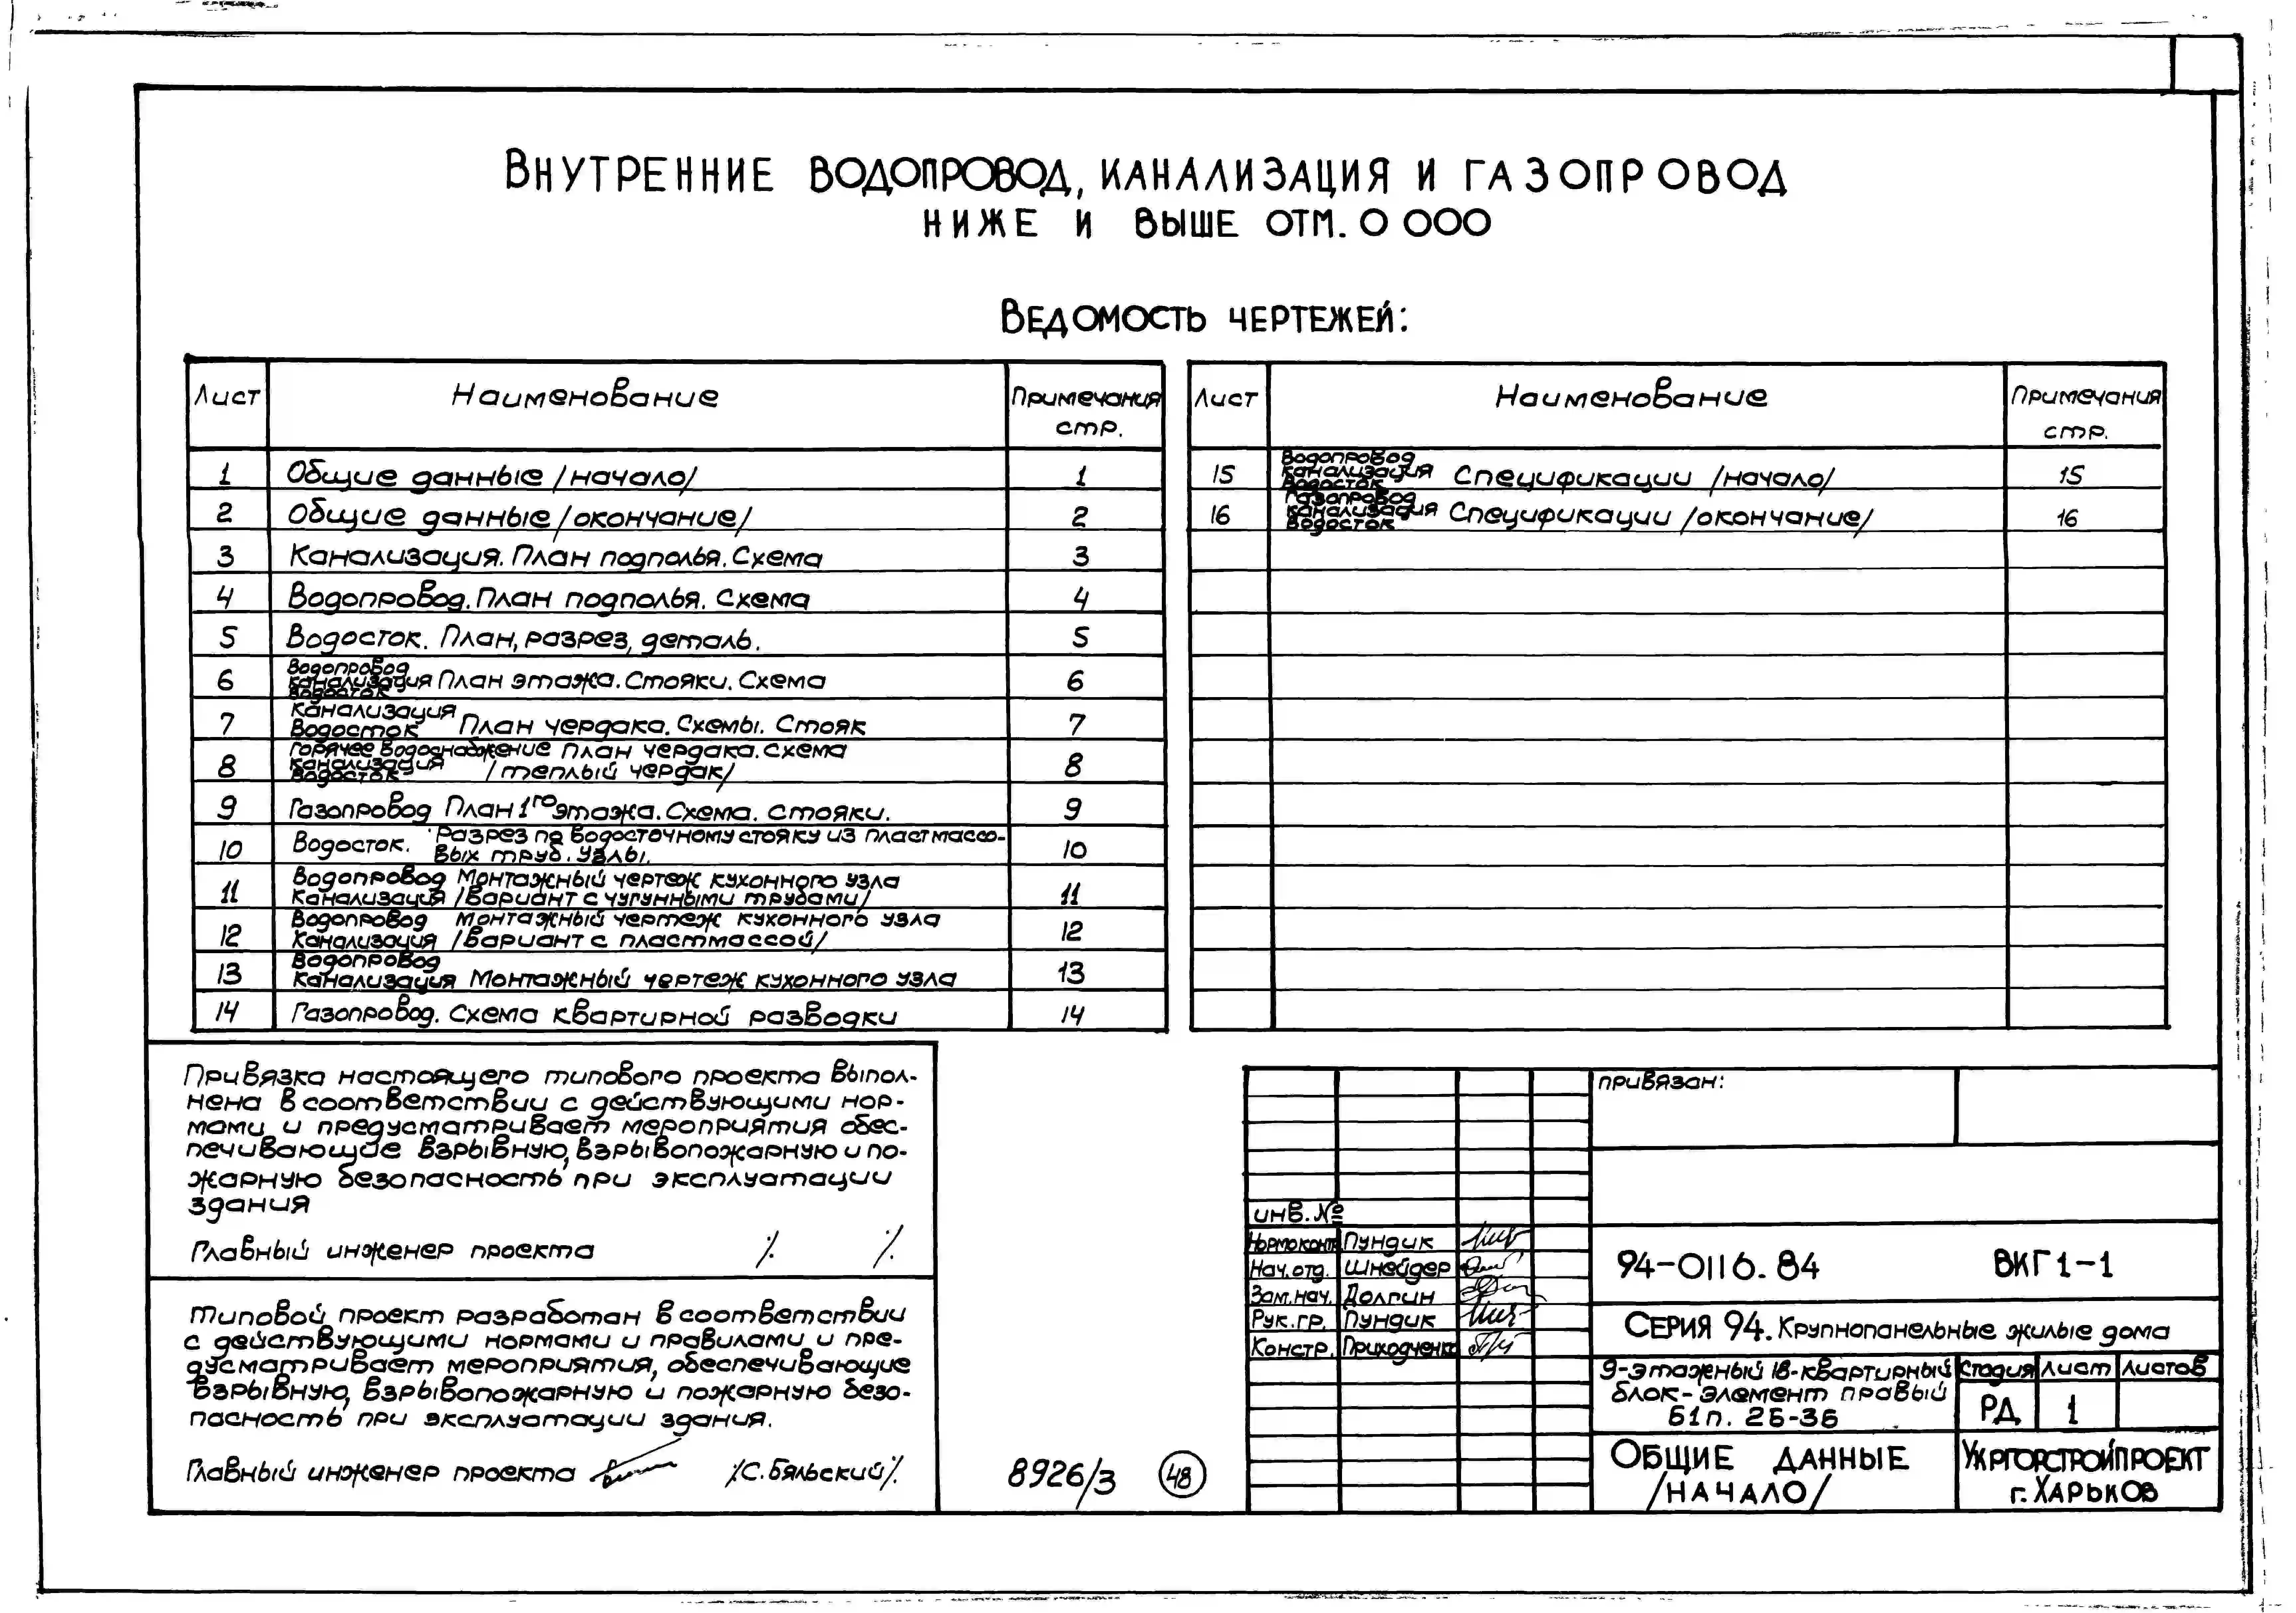 Внутренние водопровод, канализация и газопровод
ниже и выше отм. 0 000
Ведомость чертежей:
Лист Наименование Примечания стр.
1 Общие данные /начало/ 1
2 Общие данные /окончание/ 2
3 Канализация. План подполья. Схема 3
4 Водопровод. План подполья. Схема 4
5 Водосток. План, разрез, деталь. 5
6 Водопровод канализация водосток План этажа. Стояки. Схема 6
7 Канализация Водосток План чердака. Схемы. Стояк 7
8 Горячее водоснабжение канализация водосток План чердака. Схема /теплый чердак/ 8
9 Газопровод План 1го этажа. Схема. Стояки. 9
10 Водосток. Разрез по водосточному стояку из пластмассовых труб. Узлы. 10
11 Водопровод Канализация Монтажный чертеж кухонного узла /вариант с чугунными трубами/ 11
12 Водопровод Канализация Монтажный чертеж кухонного узла /вариант с пластмассой/ 12
13 Водопровод Канализация Монтажный чертеж кухонного узла 13
14 Газопровод. Схема квартирной разводки 14
Лист Наименование Примечания стр.
15 Водопровод канализация водосток Спецификации /начало/ 15
16 Газопровод канализация водосток Спецификации /окончание/ 16
Привязка настоящего типового проекта выпол-
нена в соответствии с действующими нор-
мами и предусматривает мероприятия обес-
печивающие взрывную, взрывопожарную и по-
жарную безопасность при эксплуатации
здания
Главный инженер проекта /. /.
Типовой проект разработан в соответствии
с действующими нормами и правилами и пре-
дусматривает мероприятия, обеспечивающие
взрывную, взрывопожарную и пожарную безо-
пасность при эксплуатации здания.
Главный инженер проекта /С. Бяльский/.
8926/3 48
инв. №
Нормоконт. Пундик
Нач. отд. Шнейдер
Зам. нач. Долгин
Рук. гр. Пундик
Констр. Приходченко
привязан:
94-0116.84 ВКГ1-1
Серия 94. Крупнопанельные жилые дома
9-этажный 18-квартирный
блок-элемент правый
Б1п. 2Б-3Б
Стадия Лист Листов
РД 1
Общие данные
/начало/
Укргорстройпроект
г. Харьков